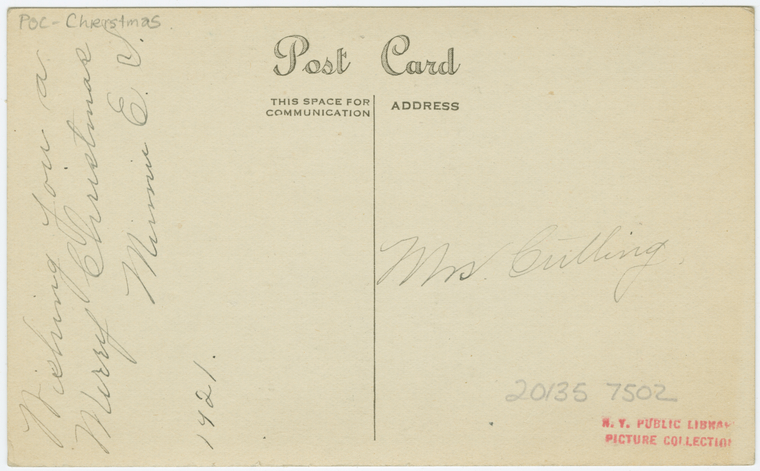 PSC - Christmas
Post Card
THIS SPACE FOR
COMMUNICATION
ADDRESS
Wishing You a
Merry Christmas
Minnie E. S.
1921.
Mrs. Cutting
20135 7502
N. Y. PUBLIC LIBRA
PICTURE COLLECTION